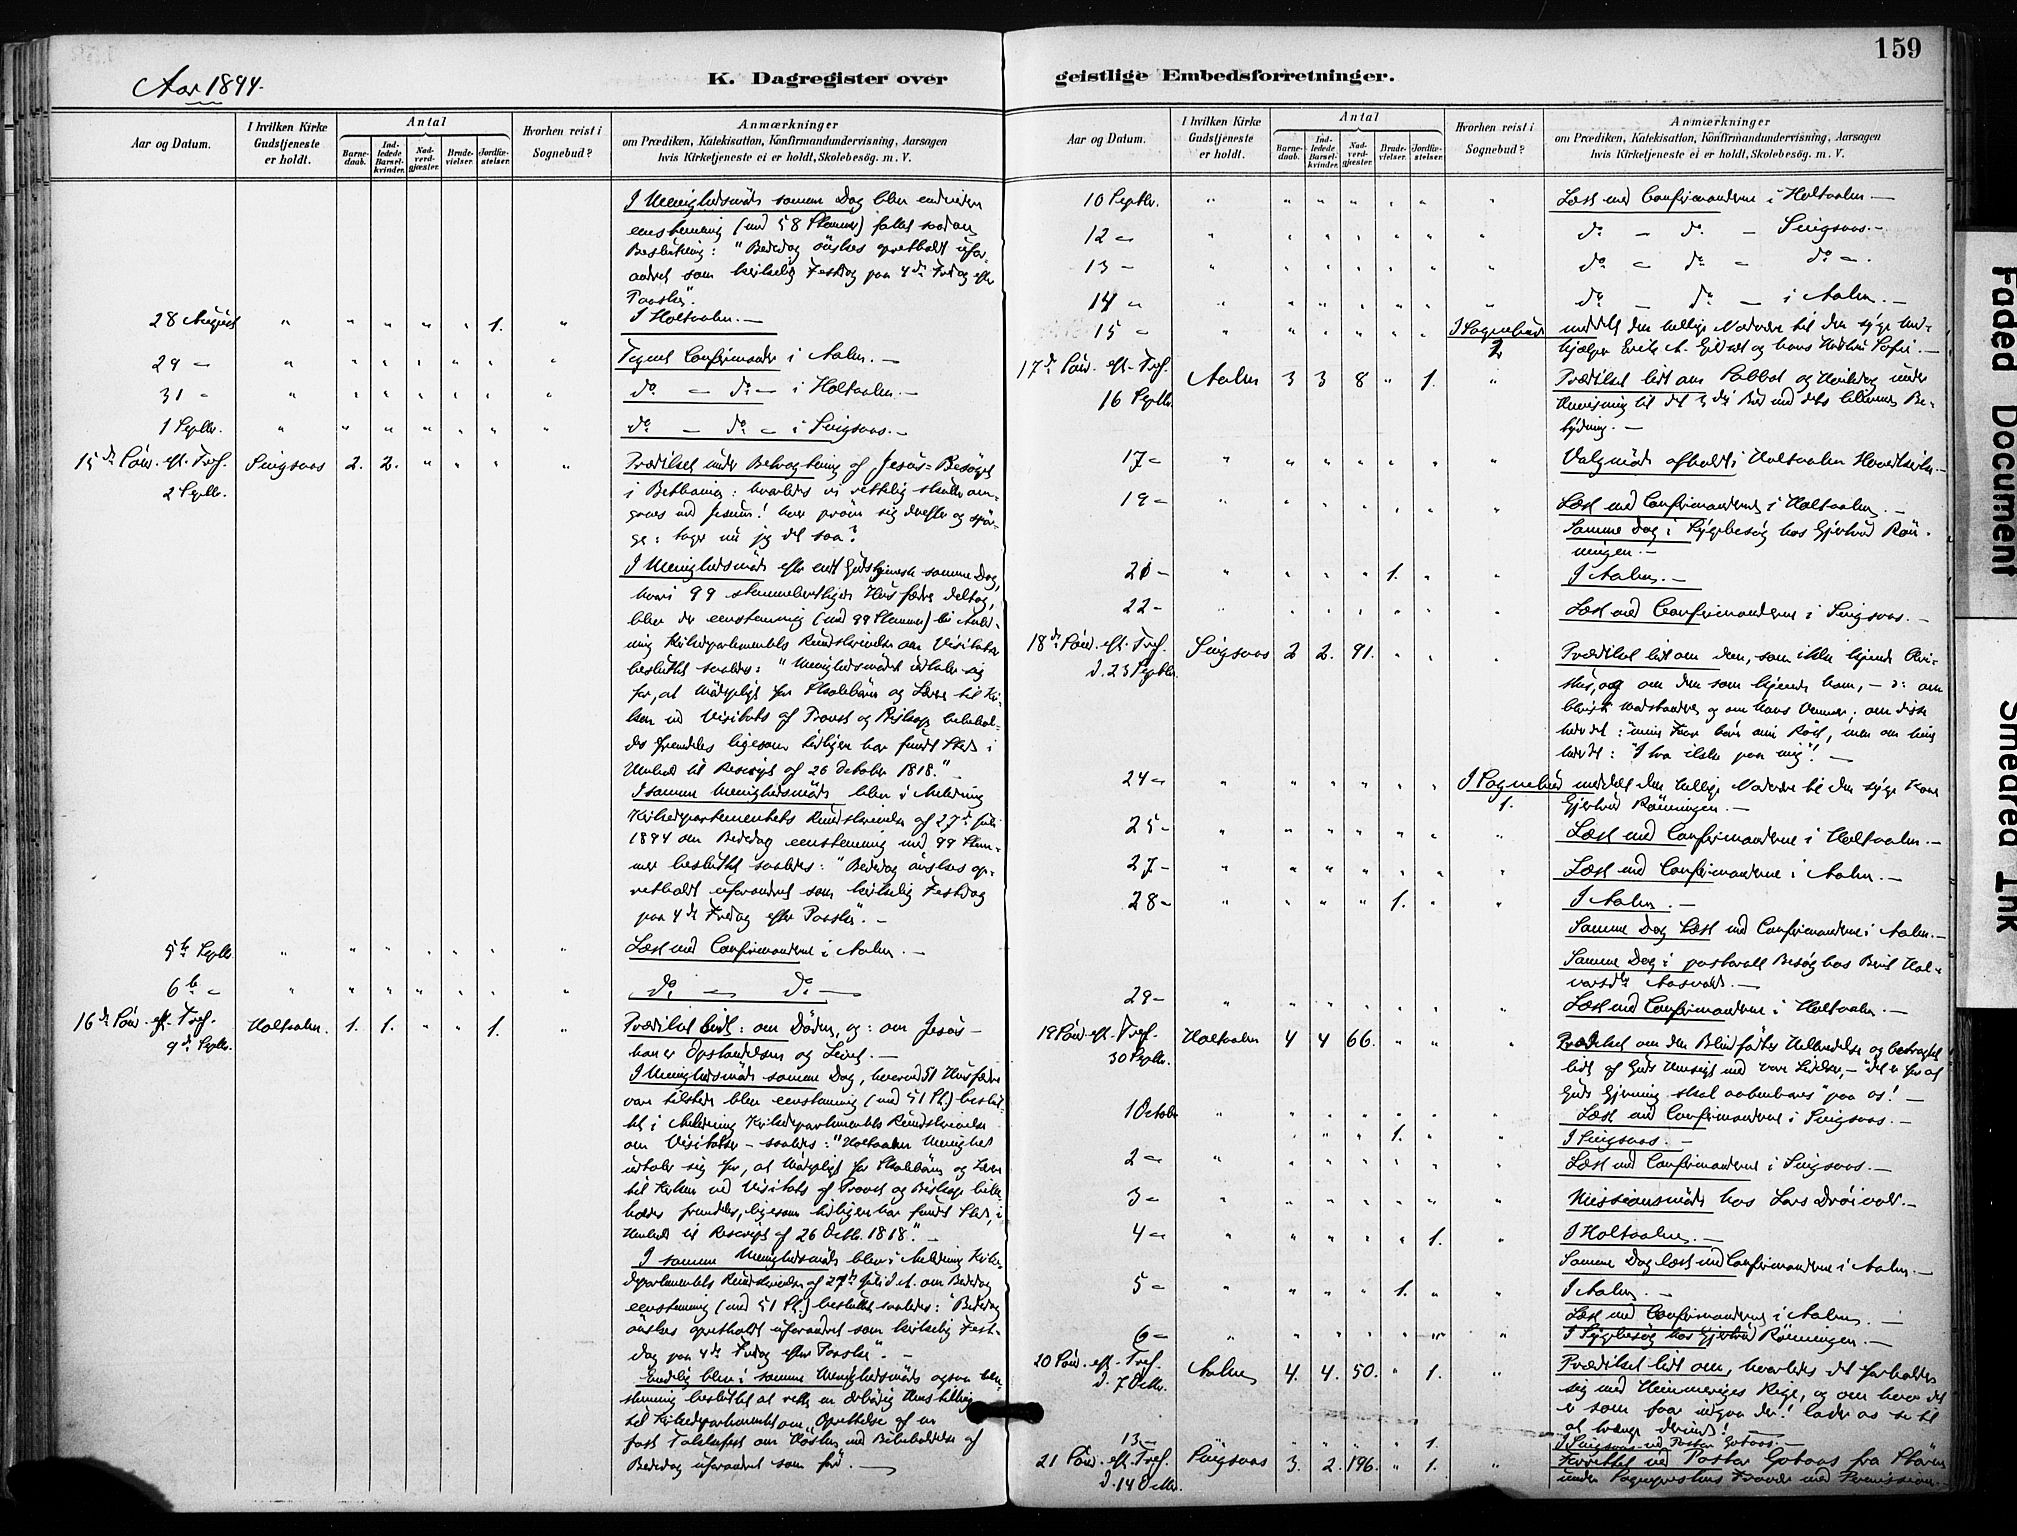 Aar 1894.
K. Dagregister over
Aar og Datum.
I hvilken Kirke Gudstjeneste er holdt.
Antal
Barnedaab.
Indledede Barselkvinder.
Nadverdgjæster.
Brudevielser.
Jordfæstelser.
Hvorhen reist i Sognebud?
Anmærkninger
om Prædiken, Katekisation, Konfirmandundervisning, Aarsagen
hvis Kirketjeneste ei er holdt, Skolebesøg. m. V.
I Menighedsmöde samme Dag blev endvidere
eenstemmig (med 58 Stemmer) fattet saadan
Beslutning: "Bededag önskes opretholdt ufor-
andret som kirkelig Festdag paa 4de Fredag efter
Paaske".
28 August " " " " " 1. " I Holtaalen. —
29 — " " " " " " " Tegnet Confirmander i Aalen. —
31 " " " " " " " " do — do — i Holtaalen. —
1 Septbr. " " " " " " " do — do — i Singsaas. —
15de Sönd. eft. Tref. Singsaas 2. 2. " " " " Prædiket under Betragtning af Jesus=Besöget
2 Septbr.
i Bethania: hvorledes vi rettelig skulle om-
gaaes med Jesum! hver pröve sig derefter og spör-
ge: tager nu jeg det saa?
I Menighedsmöde efter endt Gudstjeneste samme Dag,
hvori 99 stemmeberettigede Husfædre deltog,
blev der eenstemmig (med 99 Stemmer) i Anled-
ning Kirkedepartementets Rundskrivelse om Visitatser
besluttet saaledes: "Menighedsmödet udtaler sig
for, at Mödepligt for Skolebörn og Lærere til Kir-
ken ved Visitats af Provst og Biskop bibehol-
des fremdeles ligesom tidligere har fundet Sted i
Henhold til Rescript af 26 October 1818." —
I samme Menighedsmöde blev i Anledning
Kirkedepartementets Rundskrivelse af 27de Juli
1894 om Bededag eenstemmig med 99 Stem-
mer besluttet saaledes: "Bededag önskes op-
retholdt uforandret som kirkelig Festdag
paa 4de Fredag efter Paaske". —
5te Septbr. " " " " " " " Læst med Confirmanderne i Aalen. —
6te — " " " " " " " do — do —
16de Sönd. eft. Tref. Holtaalen. 1. 1. " " 1. " Prædiket lidt: om Döden, og: om Jesus —
9de Septbr.
han er Opstandelsen og Livet. —
I Menighedsmöde samme Dag, hvorved 51 Husfædre
vare tilstede blev eenstemmig (med 51 St.) beslut-
tet i Anledning Kirkedepartementets Rundskrivelse
om Visitatser — saaledes: "Holtaalen Menighed
udtaler sig for, at Mödepligt for Skolebörn og Lærere
til Kirken ved Visitats af Provst og Biskop bibe-
holdes fremdeles, ligesom tidligere har fundet Sted, i
Henhold til Rescript af 26 Octbr. 1818." —
I samme Menighedsmöde blev i Anledning Kirke-
departementets Rundskrivelse af 27de Juli d. A. om Bededag
eenstemmig (med 51 St.) besluttet saaledes: "Bededag
önskes opretholdt uforandret som kirkelig Fest-
dag paa 4de Fredag efter Paaske". —
Endelig blev i samme Menighedsmöde ogsaa een-
stemmig besluttet at rette en ærbödig Henstilling
til Kirkedepartementet om Oprettelse af en
fast Takkefest om Hösten med Bibeholdelse af
Bededag uforandret som för. —
159
geistlige Embedsforretninger.
Aar og Datum.
I hvilken Kirke Gudstjeneste er holdt.
Antal
Barnedaab.
Indledede Barselkvinder.
Nadverdgjæster.
Brudevielser.
Jordfæstelser.
Hvorhen reist i Sognebud?
Anmærkninger
om Prædiken, Katekisation, Konfirmandundervisning, Aarsagen
hvis Kirketjeneste ei er holdt, Skolebesøg. m. V.
10 Septbr. " " " " " " " Læst med Confirmanderne i Holtaalen —
12 — " " " " " " " do — do — Singsaas. —
13 — " " " " " " " do — do — do —.
14 " " " " " " " " do — do — i Aalen. —
15 " " " " " " " I Sognebud meddelt den hellige Nadvere til den syge
2 Erik A. og hans Hustru —
17de Sönd. eft. Tref. Aalen 3 3 8 " 1. " Prædiket lidt om Sabbat og Hviledag under
16 Septbr.
Henvisning til det 3die Bud med dets Be-
tydning. —
17 — " " " " " " " Valgmöde afholdt i Holtaalen Hovedkirke. —
19 — " " " " " " " Læst med Confirmanderne i Holtaalen. —
Samme Dag i Sygebesög hos Gjertrud Rön-
ningen. —
21 — " " " " 1. " " I Aalen. —
22 — " " " " " " " Læst med Confirmanderne i Singsaas. —
18de Sönd. eft. Tref. Singsaas 2 2. 91. " " " Prædiket lidt om dem, som ikke kjende Chri-
d. 23 Septbr.
stus, og om dem som kjende ham, — : om
Modstandere og om hans Venner; om disse
heder det: "mine Faar höre min Röst, men om hine
heder det: "I tro ikke paa mig"! —
24 — " " " " " " I Sognebud meddelt den hellige Nadvere til den syge Kone
1. Gjertrud Rönningen. —
25 — " " " " " " " Læst med Confirmanderne i Holtaalen. —
27 — " " " " " " " Læst med Confirmanderne i Aalen. —
28 — " " " " 1. " " I Aalen. —
Samme Dag Læst med Confirmanderne i Aalen. —
Samme Dag i pastoralt Besög hos Berit Hal-
varsdtr Aasvold. —
29 — " " " " " " " Læst med Confirmanderne i Holtaalen. —
19 Sönd. eft. Tref. Holtaalen 4 4 66. " " " Prædiket om den Blindfödtes Helbredelse og betragtet
30 Septbr.
lidt af Guds Hensigt med vore Lidelser, — "det er for at
Guds Gjerning skal aabenbares" paa os! —
1 October " " " " " " " Læst med Confirmanderne i Singsaas. —
" " " 1. " " I Singsaas. —
2 — " " " " " " " Læst med Confirmanderne i Singsaas. —
3 — " " " " " " " Missionsmöde hos Lars Dröivold. —
4 — " " " " " 1. " I Holtaalen. —
Samme Dag læst med Confirmanderne i Aalen. —
5 — " " " " 1. " " I Aalen. —
Læst med Confirmanderne i Aalen. —
6 — " " " " " " " I Sygebesög hos Gjertrud Rönningen. —
20 Sönd. eft. Tref. Aalen 4. 4. 50. " 1. " Prædiket lidt om, hvorledes det forholder
d. 7 Octbr.
sig med Himmeriges Rige, og om hvor det
er som faar indgaa der! lader os se til
at trænge derind!
13 — " " " " 1. I Singsaas ved Pastor Gotaas. —
21 Sönd. eft. Tref. Singsaas 3. 2. 196. " 1. " Forrettet ved Pastor Gotaas fra Stören
d. 14 Octbr.
under Sognepræstens Fravær med Permission.
Faded Document
Smeared Ink